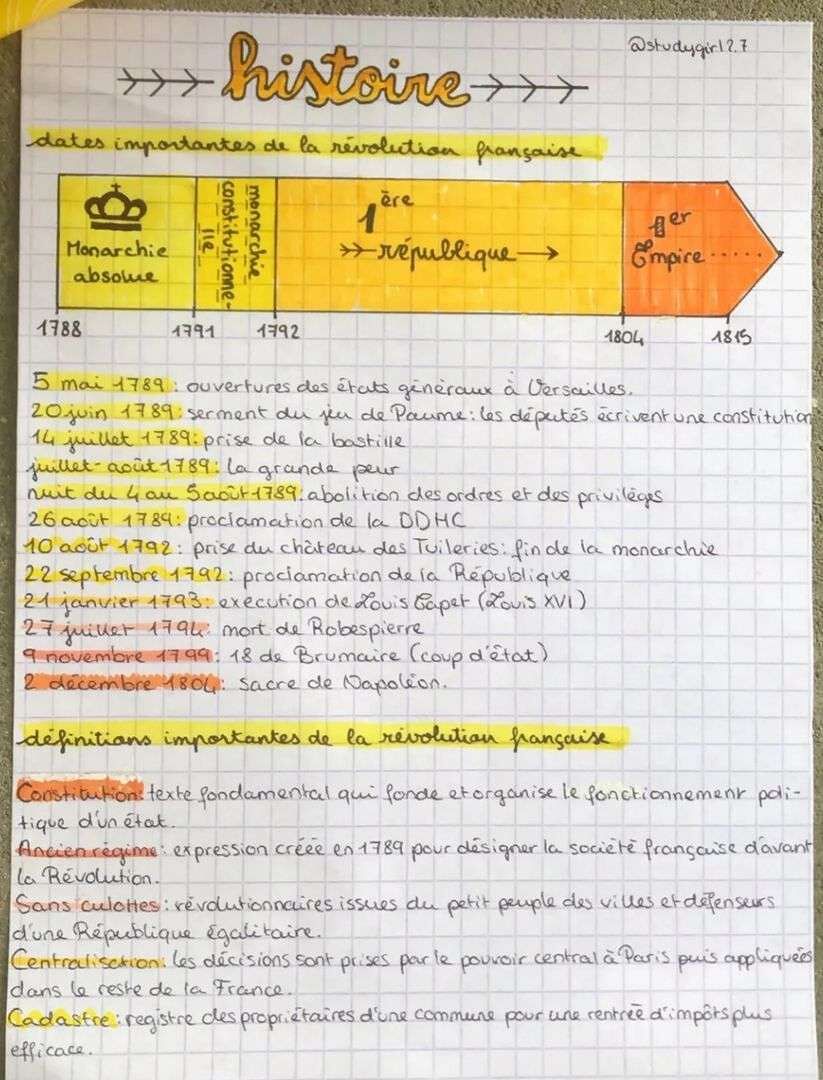 @studygirl2.7
histoire
dates importantes de la révolution française
Monarchie
absolue
monarchie
constitutionne-
lle
1ère
république
1er
Empire
1788
1791
1792
1804
1815
5 mai 1789 : ouvertures des états généraux à Versailles.
20 juin 1789 : serment du jeu de Paume : les députés écrivent une constitution
14 juillet 1789 : prise de la bastille
juillet-août 1789 : la grande peur
nuit du 4 au 5 août 1789 : abolition des ordres et des privilèges
26 août 1789 : proclamation de la DDHC
10 août 1792 : prise du château des Tuileries : fin de la monarchie
22 septembre 1792 : proclamation de la République
21 janvier 1793 : execution de Louis Capet (Louis XVI)
27 juillet 1794 : mort de Robespierre
9 novembre 1799 : 18 de Brumaire (coup d'état)
2 décembre 1804 : Sacre de Napoléon.
définitions importantes de la révolution française
Constitution : texte fondamental qui fonde et organise le fonctionnement poli-
tique d'un état.
Ancien régime : expression créée en 1789 pour désigner la société française d'avant
la Révolution.
Sans culottes : révolutionnaires issues du petit peuple des villes et défenseurs
d'une République égalitaire.
Centralisation : les décisions sont prises par le pouvoir central à Paris puis appliquées
dans le reste de la France.
Cadastre : registre des propriétaires d'une commune pour une rentrée d'impôts plus
efficace.